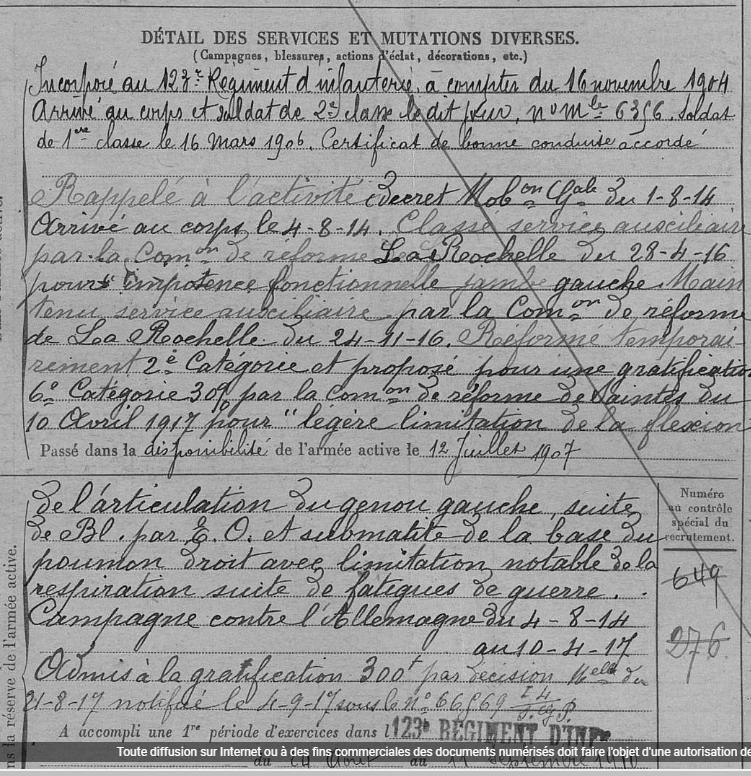 DÉTAIL DES SERVICES ET MUTATIONS DIVERSES.
(Campagnes, blessures, actions d'éclat, décorations, etc.)
Incorporé au 123e Régiment d'infanterie, à compter du 16 novembre 1904
Arrivé au corps et soldat de 2e classe le dit jour, no mle 6356. Soldat
de 1ere classe le 16 Mars 1906. Certificat de bonne conduite accordé
Rappelé à l'activité decret Mobon Gale du 1-8-14
Arrivé au corps le 4-8-14. Classé service auxiliaire
par la Comon de réforme La Rochelle du 28-4-16
pour Impotence fonctionnelle jambe gauche Main
tenu service auxiliaire par la Comon de réforme
de La Rochelle du 24-11-16. Réformé temporai-
rement 2e Catégorie et proposé pour une gratification
6e Catégorie 30% par la Comon de réforme de Saintes du
10 Avril 1917 pour "légère limitation de la flexion
Passé dans la disponibilité de l'armée active le 12 Juillet 1907
de l'articulation du genou gauche, suite
de Bl. par E. O. et submatité de la base du
poumon droit avec limitation notable de la
respiration suite de fatigues de guerre.
Campagne contre l'Allemagne du 4-8-14
au 10-4-17
Admis à la gratification 300f par décision Melle du
21-8-17 notifiée le 4-9-17 sous le no 66569
A accompli une 1re période d'exercices dans l 123e RÉGIMENT D'INFie
du 24 Août au 11 Septembre 1910
Numéro
au contrôle
spécial du
recrutement.
649
276
ns la réserve de l'armée active.
Toute diffusion sur Internet ou à des fins commerciales des documents numérisés doit faire l'objet d'une autorisation de